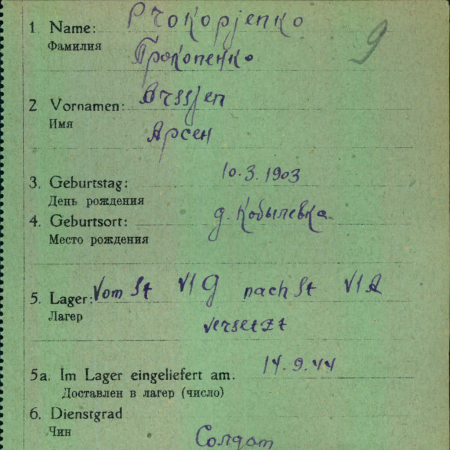 1 Name: Prokopjenko
Фамилия
Прокопенко
9
2 Vornamen: Arssjen
Имя
Арсен
3. Geburtstag: 10.3.1903
День рождения
4. Geburtsort: д. Кобылевка
Место рождения
5. Lager: Vom St VI G nach St VI A
Лагерь
versetzt
5a. Im Lager eingeliefert am. 14.9.44
Доставлен в лагерь (число)
6. Dienstgrad
Чин
Солдат